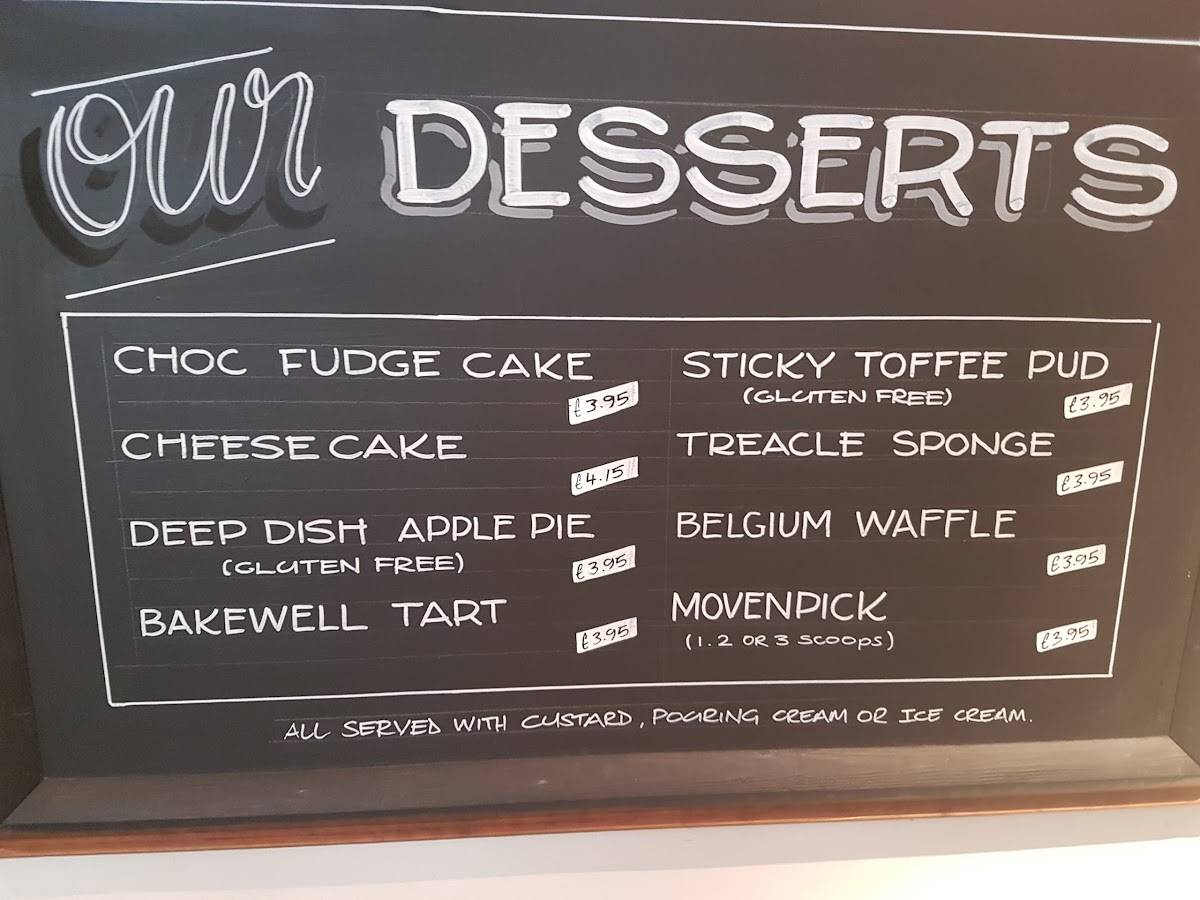 Our DESSERTS
CHOC FUDGE CAKE
£3.95
CHEESE CAKE
£4.15
DEEP DISH APPLE PIE
(GLUTEN FREE)
£3.95
BAKEWELL TART
£3.95
STICKY TOFFEE PUD
(GLUTEN FREE)
£3.95
TREACLE SPONGE
£3.95
BELGIUM WAFFLE
£3.95
MOVENPICK
(1.2 OR 3 SCOOPS)
£3.95
ALL SERVED WITH CUSTARD, POURING CREAM OR ICE CREAM.